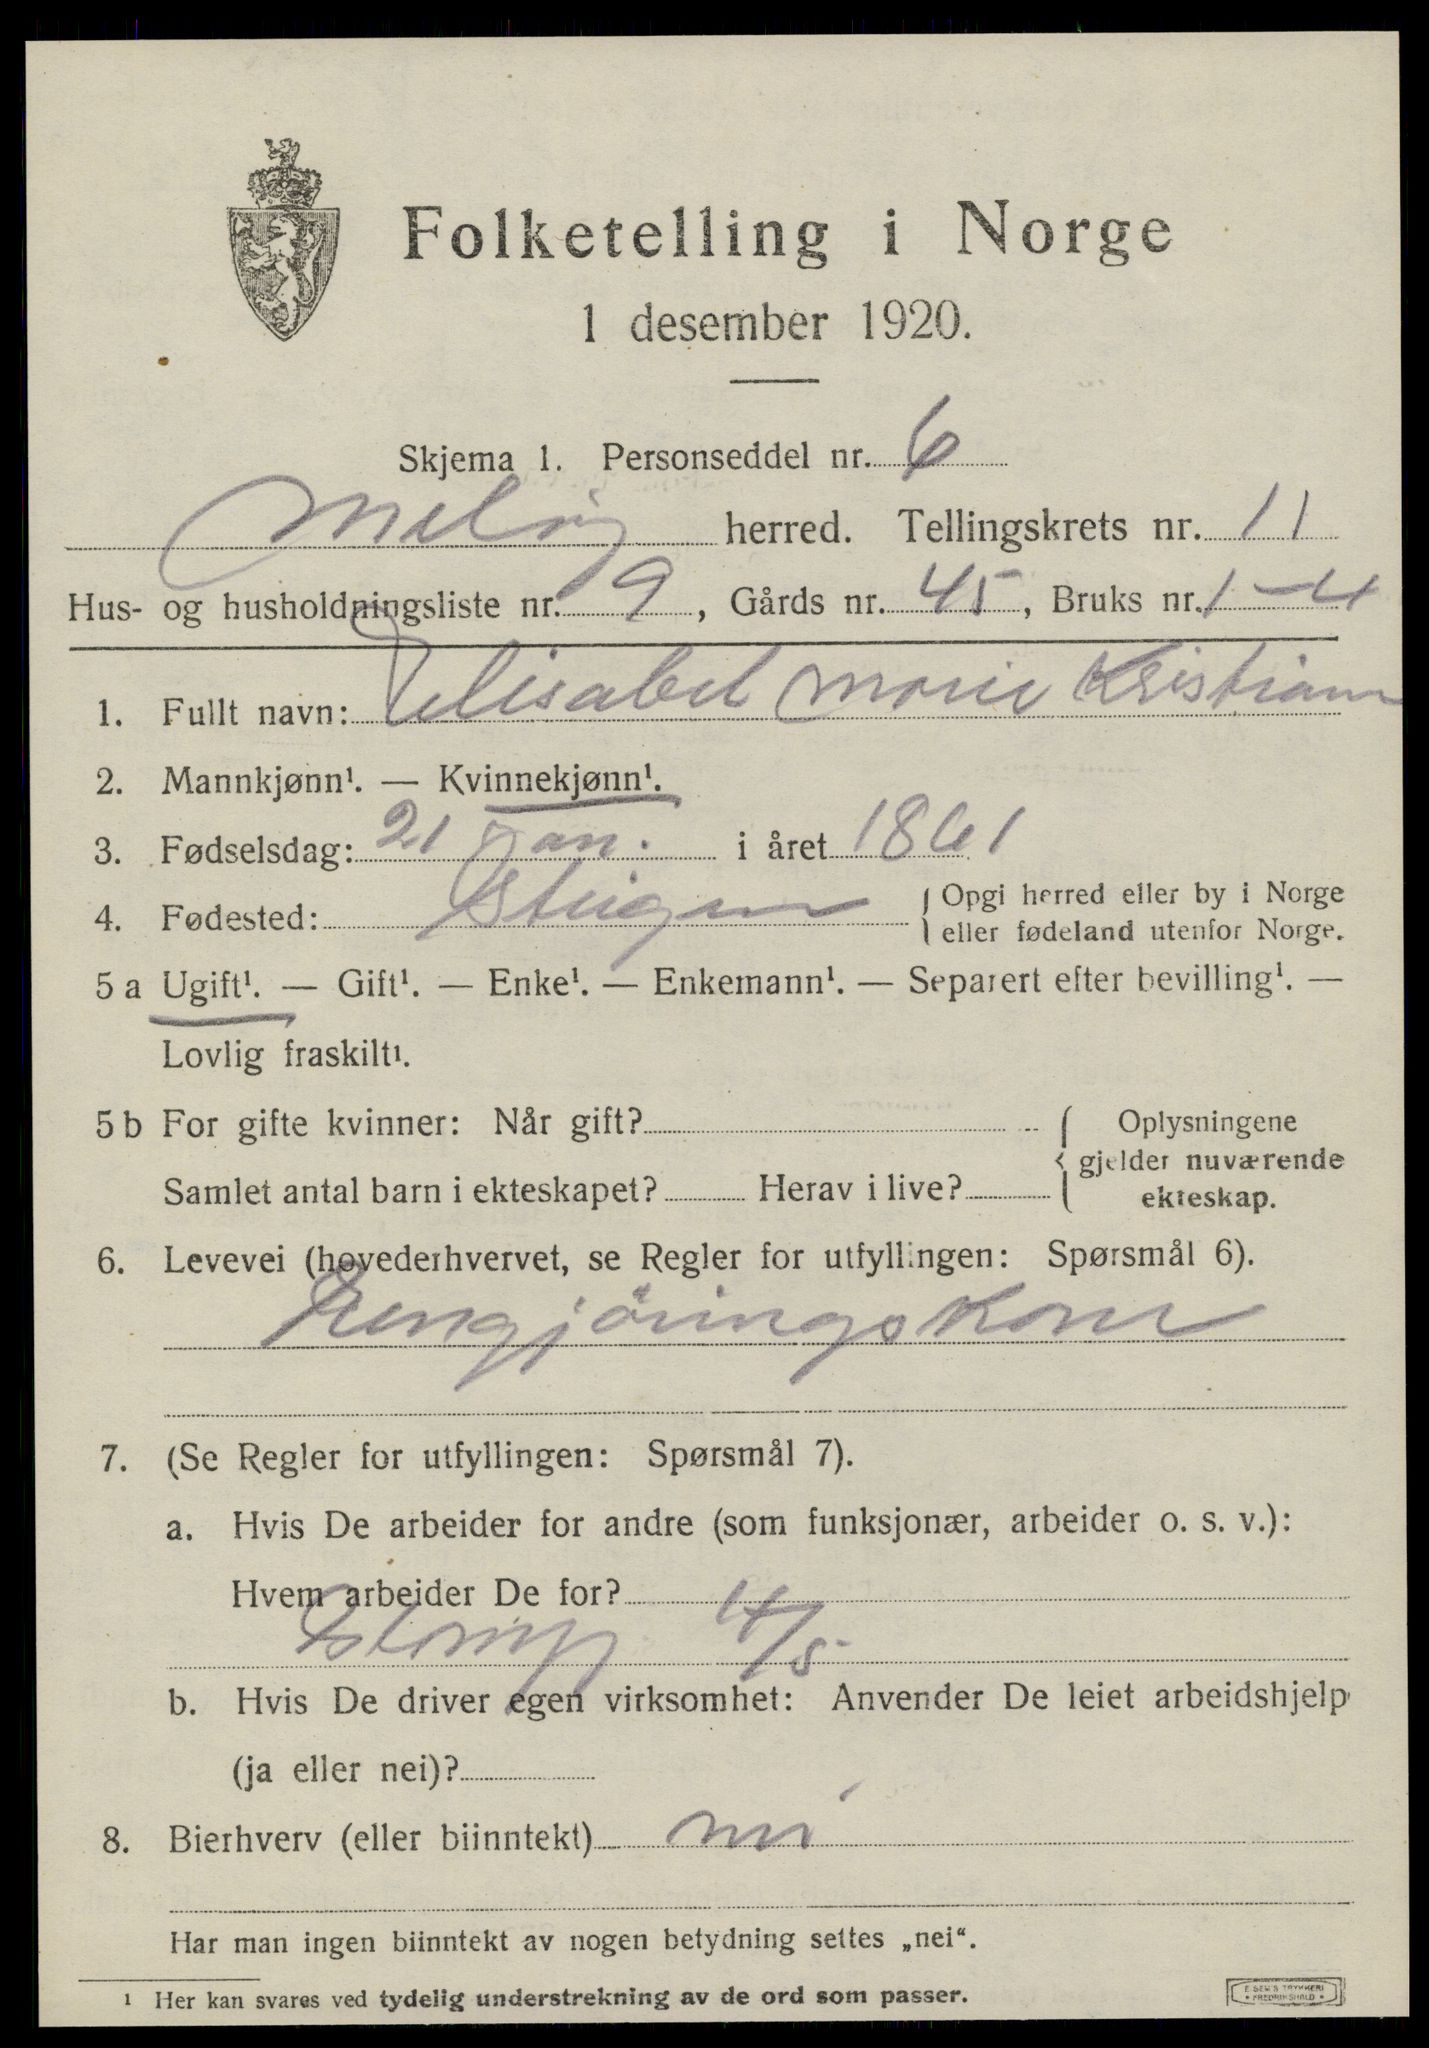 Folketelling i Norge
1 desember 1920.
Skjema 1. Personseddel nr. 6
Meløy herred. Tellingskrets nr. 11
Hus- og husholdningsliste nr. 9, Gårds nr. 45, Bruks nr. 1-4
1. Fullt navn: Elisabet Marie Kristians
2. Mannkjønn¹. — Kvinnekjønn¹.
3. Fødselsdag: 21 Jan. i året 1861
4. Fødested: Steigen { Opgi herred eller by i Norge
eller fødeland utenfor Norge.
5 a Ugift¹. — Gift¹. — Enke¹. — Enkemann¹. — Separert efter bevilling¹. —
Lovlig fraskilt¹.
5 b For gifte kvinner: Når gift? { Oplysningene
gjelder nuværende
Samlet antal barn i ekteskapet? Herav i live? ekteskap.
6. Levevei (hovederhvervet, se Regler for utfyllingen: Spørsmål 6).
Rengjöringskone
7. (Se Regler for utfyllingen: Spørsmål 7).
a. Hvis De arbeider for andre (som funksjonær, arbeider o. s. v.):
Hvem arbeider De for?
Glomfj A/S
b. Hvis De driver egen virksomhet: Anvender De leiet arbeidshjelp
(ja eller nei)?
8. Bierhverv (eller biinntekt) nei
Har man ingen biinntekt av nogen betydning settes „nei“.
¹ Her kan svares ved tydelig understrekning av de ord som passer.
E SEM'S TRYKKERI
• FREDRIKSHALD •